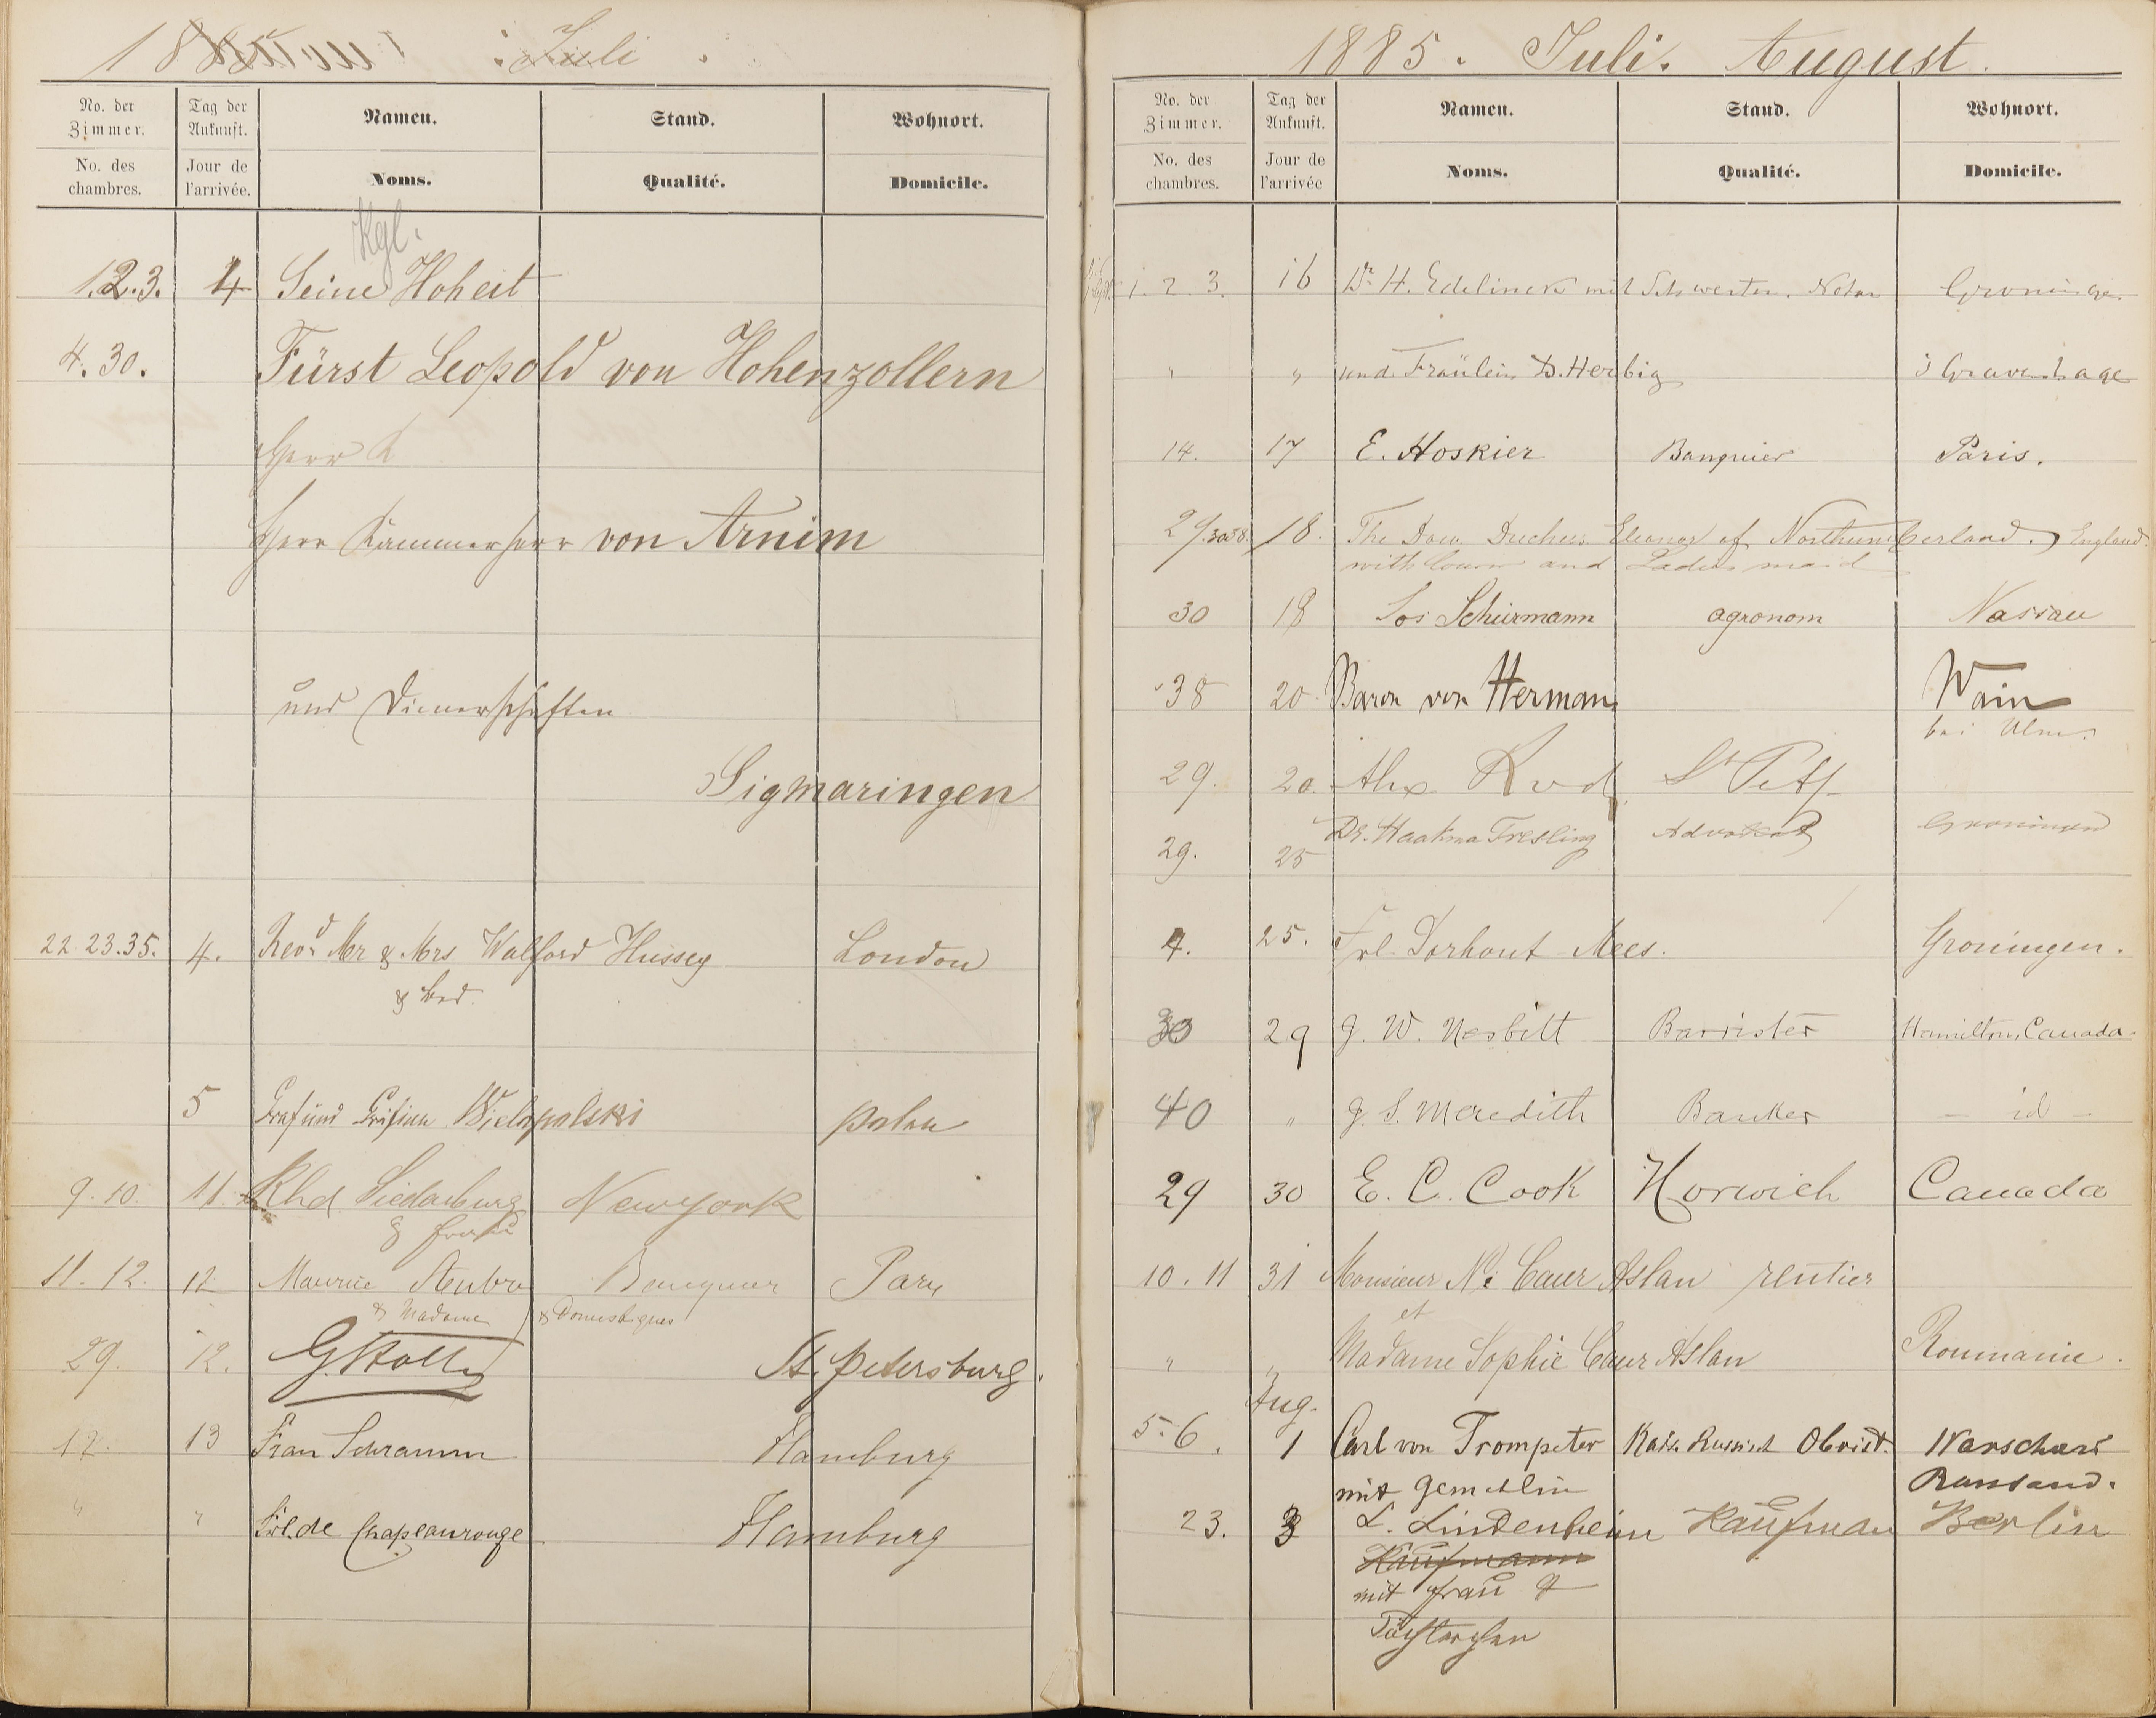 Juli
No. der Zimmer. Tag der Ankunft. Namen. Stand. Wohnort.
No. des chambres. Jour de l'arrivée. Noms. Qualité. Domicile.
Kgl.
1.2.3. 4 Seine Hoheit
4. 30. Fürst Leopold von Hohenzollern
Herr
Herr Kammerherr von Arnim
und Dienerschaften
Sigmaringen
22 23.35. 4. Revd. Mr & Mrs Walford Hussey London
5 Graf und Gräfin Wielopolski Polen
9. 10. 11. Rhd. New York
& Frau
11. 12. 12 Maurice Banquier
& Madame & Domestiques
29. 12. St. Petersburg.
12. 13 Frau Schramm Hamburg
" " Frl. de Chapeaurouge Hamburg
1885. Juli. August.
No. der Zimmer. Tag der Ankunft. Namen. Stand. Wohnort.
No. des chambres. Jour de l'arrivée Noms. Qualité. Domicile.
1. 2. 3. 16 Dr. H. Edelinck mit Schwester. Notar
" " und Fraülein D. Herbig s Gravenhage
14. 17 E. Hoskier Banquier Paris.
18. The Dow. Duchess Eleanor of Northumberland. England.
with and Ladies maid
30 18 Jos Schürmann agronom Nassau
38 20 Baron von Herman Wain
bei Ulm.
29. 20. Alex
29. 25 Dr. Haakma Tresling Advokat Groningen
4. 25. Frl. Dorhout Mees. Groningen.
30 29 J. W. Nesbitt Barrister Hamilton, Canada.
40 " J. S. Meredith Banker - id -
29 30 E. C. Cook Norwich Canada
10. 11 31 Monsieur Aslan rentier
et
" " Madame Sophie Aslan Roumanie.
Aug.
5. 6. 1 Carl von Trompeter Kais. Russisch Obrist. Warschau
mit Gemahlin Russland.
23. 3 L. Lindenheim Kaufman Berlin
Kaufmann
mit Frau &
Töchterchen